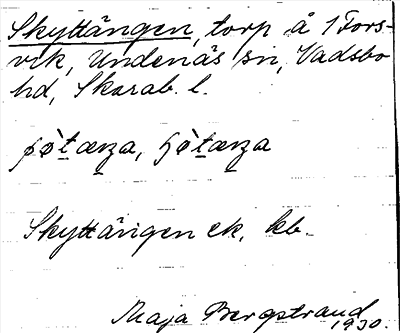 Skyttängen, torp å 1 Fors-
vik, Undenäs sn, Vadsbo
hd, Skarab. l.
Skyttängen ek. kb.
Maja Bergstrand
1930.